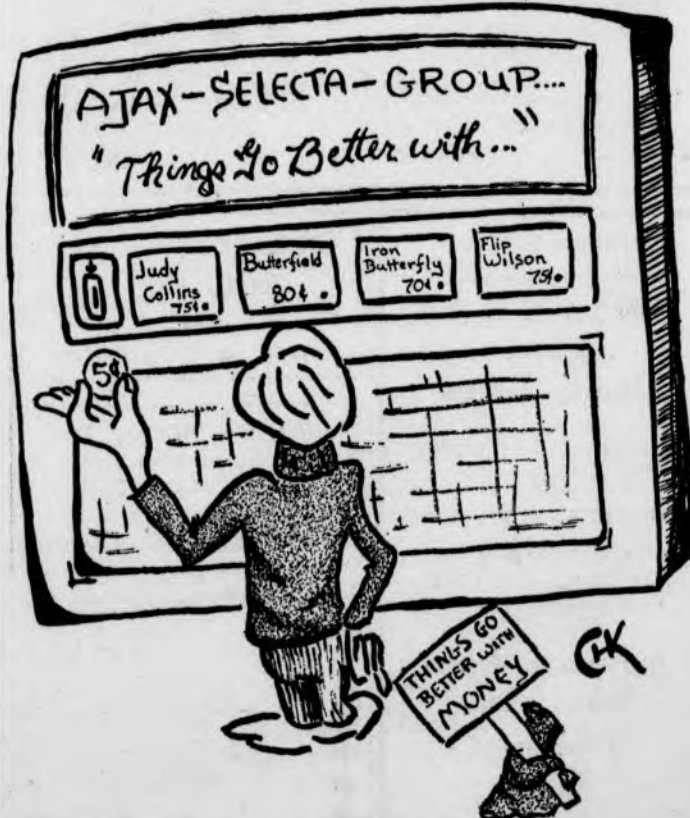 AJAX-SELECTA-GROUP....
"Things Go Better with..."
Judy
Collins
75¢.
Butterfield
80¢.
Iron
Butterfly
70¢.
Flip
Wilson
75¢.
5¢
THINGS GO
BETTER WITH
MONEY
CHK